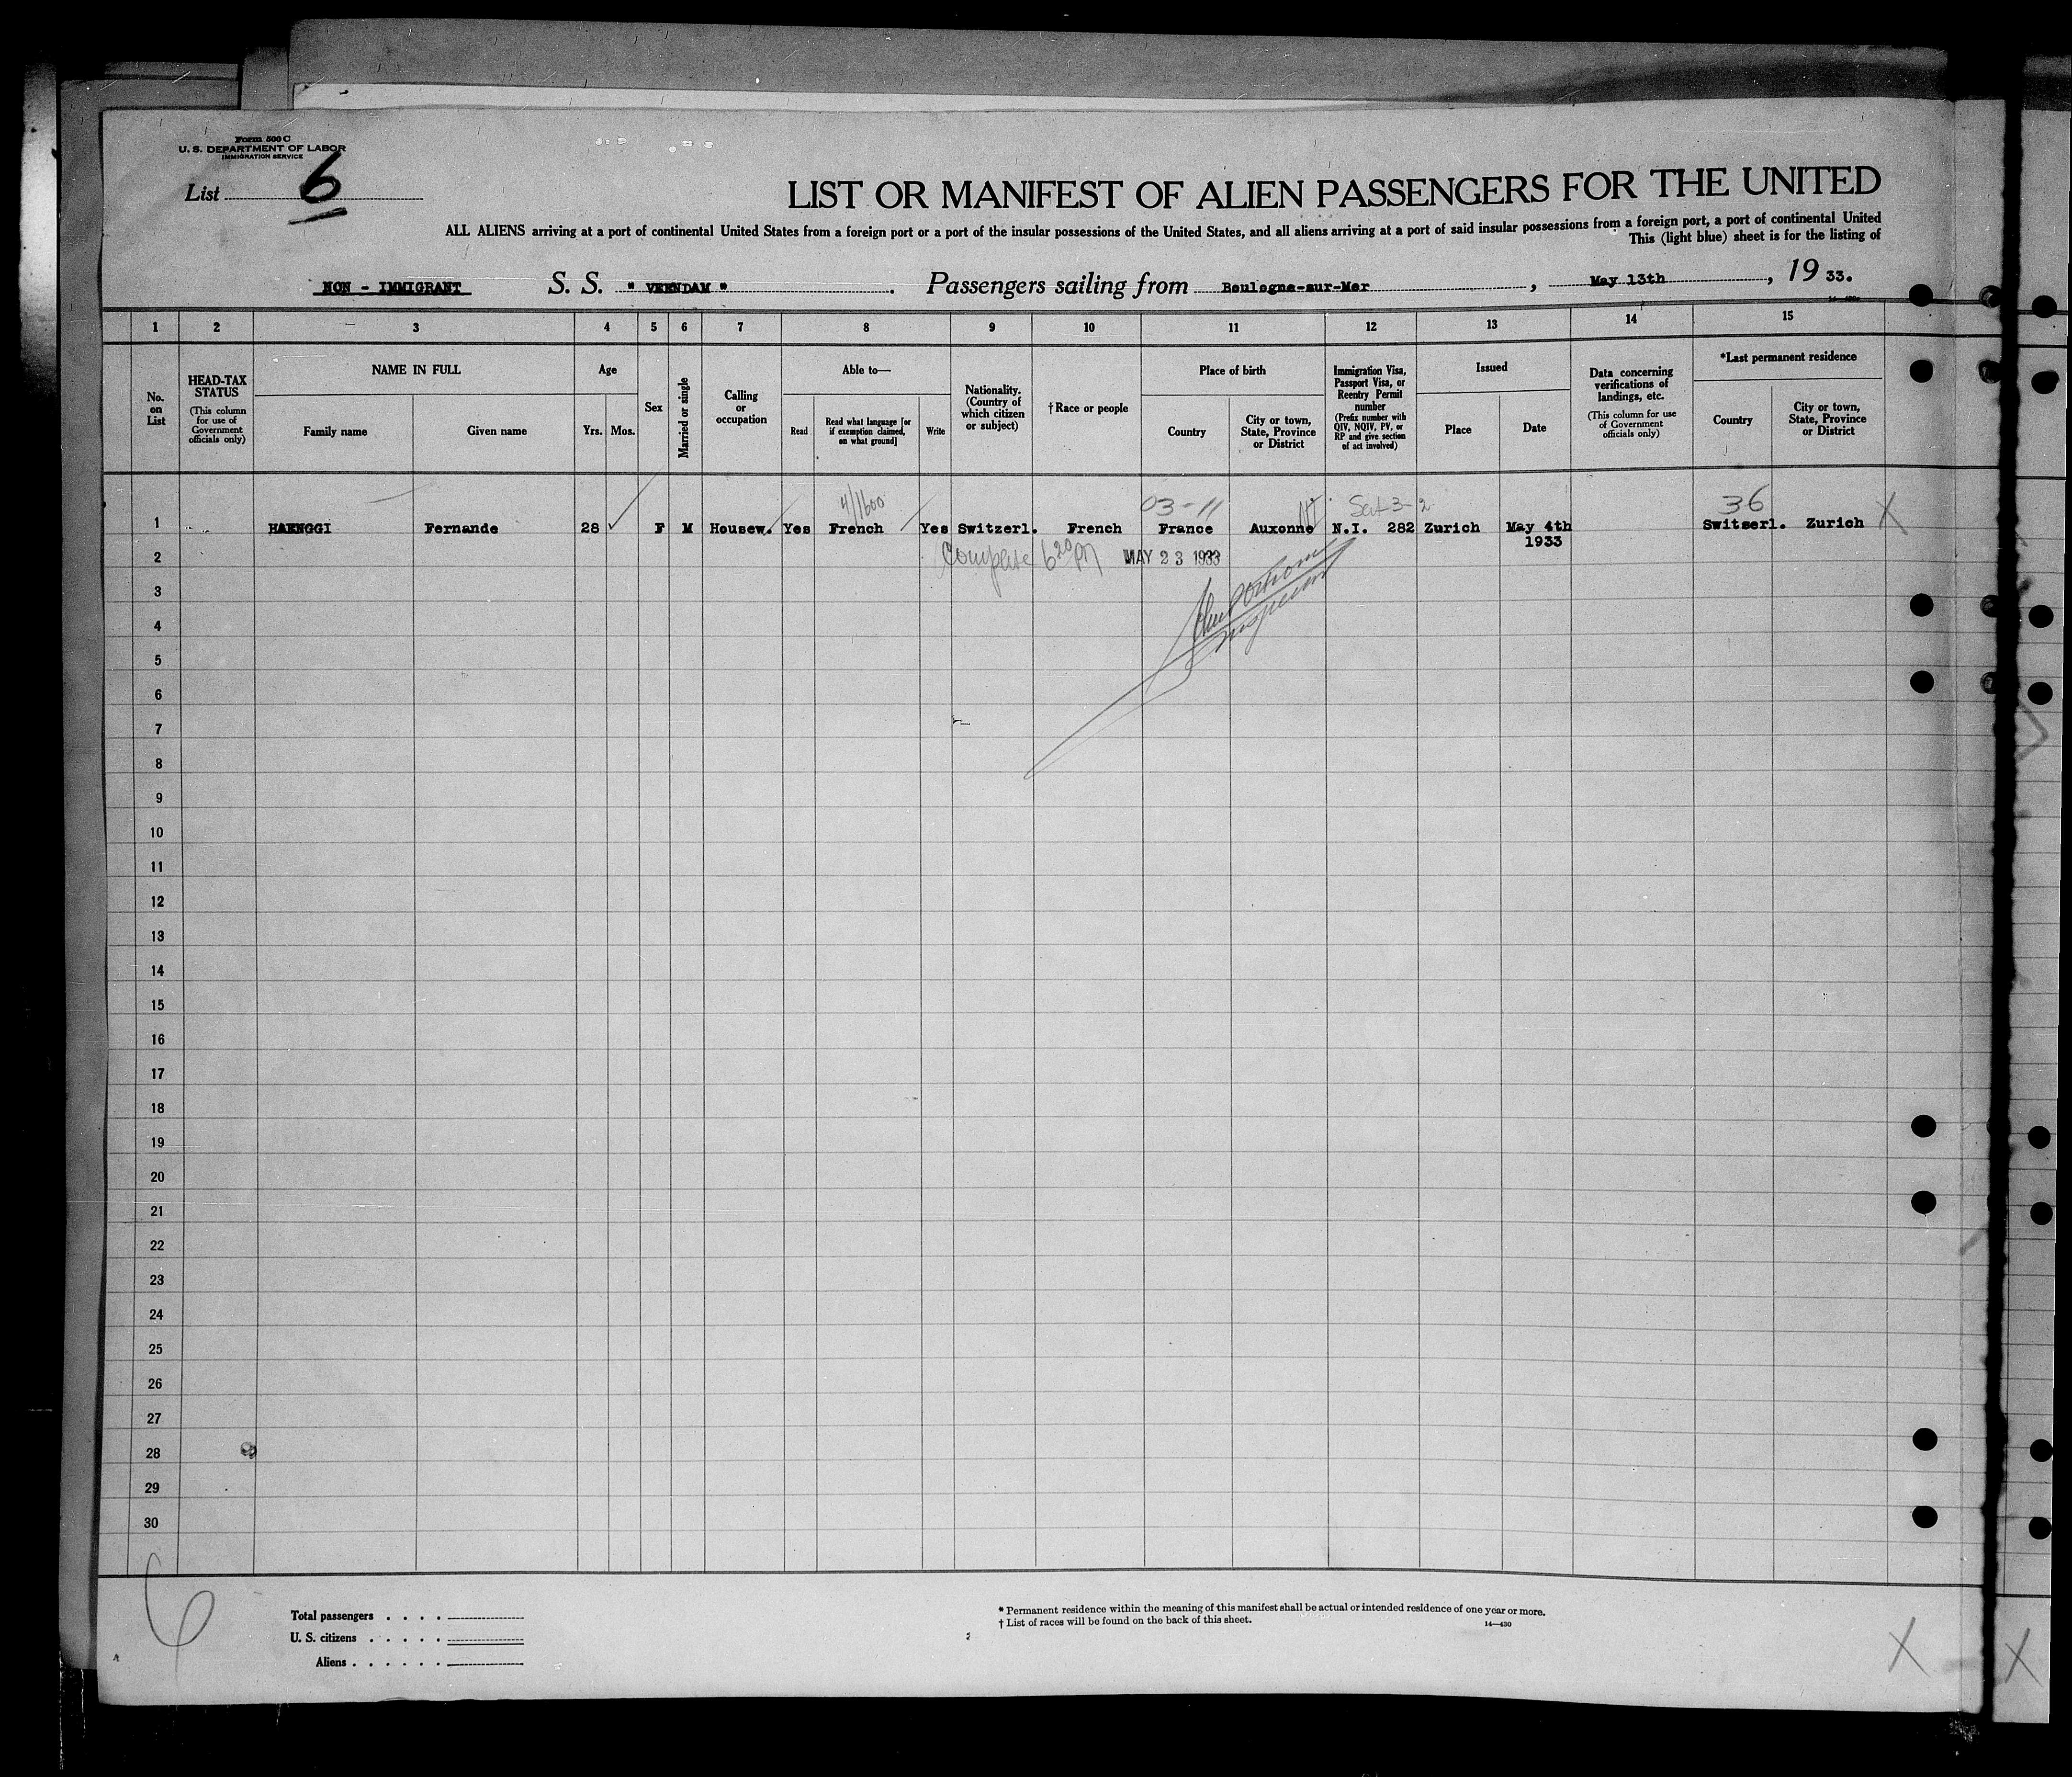 Form 500 C
U. S. DEPARTMENT OF LABOR
IMMIGRATION SERVICE
List 6
LIST OR MANIFEST OF ALIEN PASSENGERS FOR THE UNITED
ALL ALIENS arriving at a port of continental United States from a foreign port or a port of the insular possessions of the United States, and all aliens arriving at a port of said insular possessions from a foreign port, a port of continental United
This (light blue) sheet is for the listing of
NON - IMMIGRANT S. S. " VEENDAM " Passengers sailing from Boulogne-sur-Mer, May 13th, 19 33.
1 2 3 4 5 6 7 8 9 10 11 12 13 14 15
No. on List
HEAD-TAX STATUS (This column for use of Government officials only)
NAME IN FULL
Family name
Given name
Age
Yrs. Mos.
Sex
Married or single
Calling or occupation
Able to—
Read
Read what language [or if exemption claimed, on what ground]
Write
Nationality. (Country of which citizen or subject)
†Race or people
Place of birth
Country
City or town, State, Province or District
Immigration Visa, Passport Visa, or Reentry Permit number (Prefix number with QIV, NQIV, PV, or RP and give section of act involved)
Issued
Place
Date
Data concerning verifications of landings, etc. (This column for use of Government officials only)
*Last permanent residence
Country
City or town, State, Province or District
4/1600 03-11 36
1 HAENGGI Fernande 28 F M Housew. Yes French Yes Switzerl. French France Auxonne N.I. 282 Zurich May 4th 1933 Switserl. Zurich X
2 MAY 23 1933
3
4
5
6
7
8
9
10
11
12
13
14
15
16
17
18
19
20
21
22
23
24
25
26
27
28
29
30
6
Total passengers . . . .
U. S. citizens . . . . .
Aliens . . . . . .
* Permanent residence within the meaning of this manifest shall be actual or intended residence of one year or more.
† List of races will be found on the back of this sheet.
14—430
X X